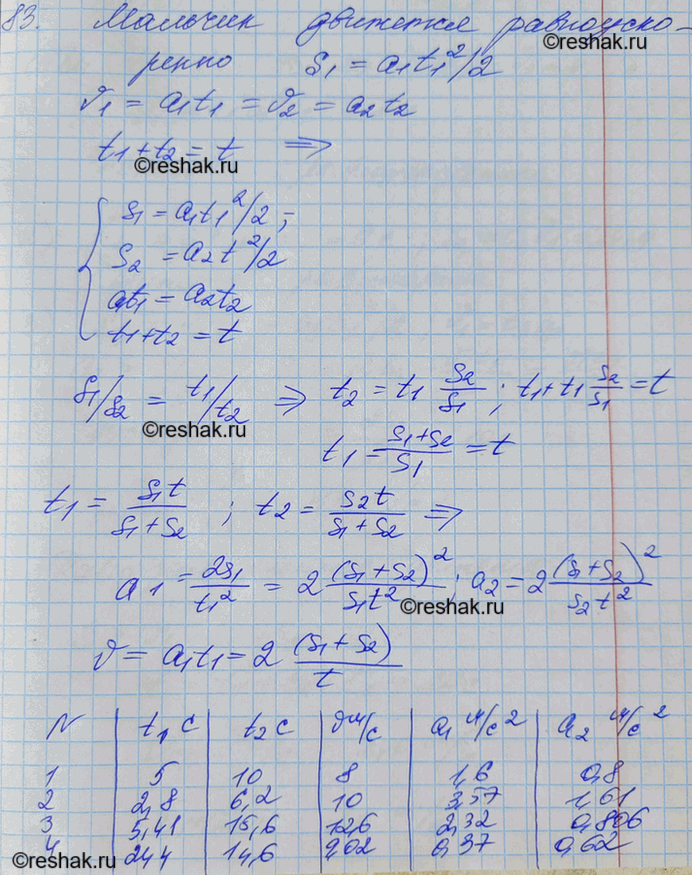 83. Мальчик движется равноуско-
©reshak.ru
ренно S1 = a1t1²/2
ϑ1 = a1t1 = ϑ2 = a2t2
t1+t2 = t ⇒
©reshak.ru
S1 = a1t1²/2;
S2 = a2t²/2
at1 = a2t2
t1+t2 = t
S1/S2 = t1/t2 ⇒ t2 = t1 S2/S1; t1+t1 S2/S1 = t
©reshak.ru
t1 = (S1+S2)/S1 = t
t1 = S1t/(S1+S2); t2 = S2t/(S1+S2) ⇒
a1 = 2S1/t1² = 2 (S1+S2)²/(S1t²); a2 = 2 (S1+S2)²/(S2t²)
©reshak.ru
ϑ = a1t1 = 2 (S1+S2)/t
N | t1 с | t2 с | ϑ м/с | a1 м/с² | a2 м/с²
1 | 5 | 10 | 8 | 1,6 | 0,8
2 | 2,8 | 6,2 | 10 | 3,57 | 1,61
3 | 5,41 | 15,6 | 12,6 | 2,32 | 0,806
4 | 24,4 | 14,6 | 9,02 | 0,37 | 0,62
©reshak.ru
©reshak.ru